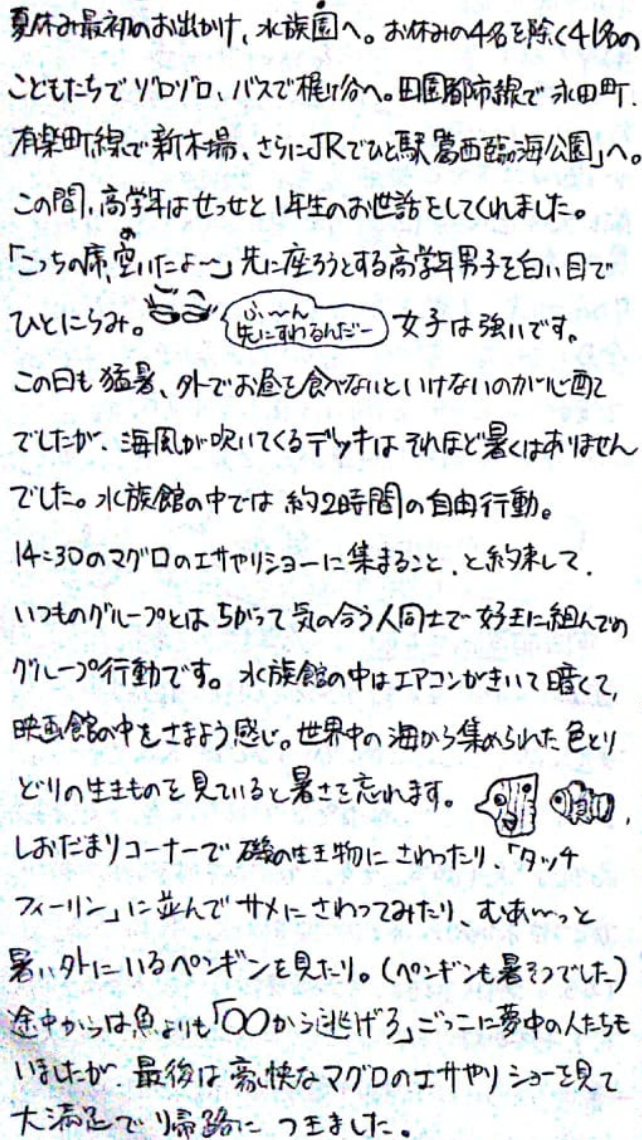 夏休み最初のお出かけ、水族園へ。お休みの4名を除く41名の
こどもたちでゾロゾロ、バスで梶が谷へ。田園都市線で永田町、
有楽町線で新木場、さらにJRでひと駅「葛西臨海公園」へ。
この間、高学年はせっせと1年生のお世話をしてくれました。
「こっちの席、空いたよ〜」先に座ろうとする高学年男子を白い目で
ひとにらみ。
ふ〜〜ん
先にすわるんだー
女子は強いです。
この日も猛暑、外でお昼を食べないといけないのが心配
でしたが、海風が吹いてくるデッキはそれほど暑くはありません
でした。水族館の中では約2時間の自由行動。
14:30のマグロのエサやりショーに集まること、と約束して、
いつものグループとはちがって気の合う人同士で好きに組んでの
グループ行動です。水族館の中はエアコンがきいて暗くて、
映画館の中をさまよう感じ。世界中の海から集められた色とり
どりの生きものを見ていると暑さを忘れます。
しおだまりコーナーで磯の生き物にさわったり、「タッチ
フィーリン」に並んでサメにさわってみたり、むわぁ〜っと
暑い外にいるペンギンを見たり。(ペンギンも暑そうでした)
途中からは魚よりも「〇〇から逃げろ」ごっこに夢中の人たちも
いましたが、最後は豪快なマグロのエサやりショーを見て
大満足で帰路につきました。